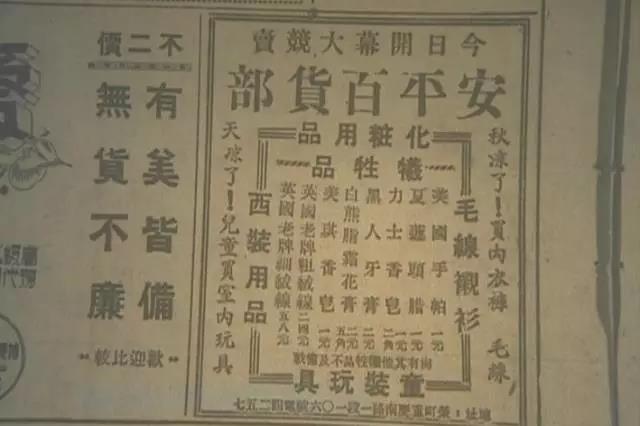 今日開幕大競賣
安平百貨部
秋凉了!買內衣褲 毛線
毛線襯衫
化粧用品
犧牲品
美國手帕 一元
夏蓮頭腊 一元
力士香皂
黑人牙膏
白熊脂霜花膏
美琪香皂 一元
英國老牌粗絨線 二四元
英國老牌細絨線 五八元
尚有其他犧牲品不及備載
童裝玩具
西裝用品
天凉了!兒童買室內玩具
地址:榮町重慶南路一段一〇六號電四二五七
不二價
有美皆備
無貨不廉
歡迎比較